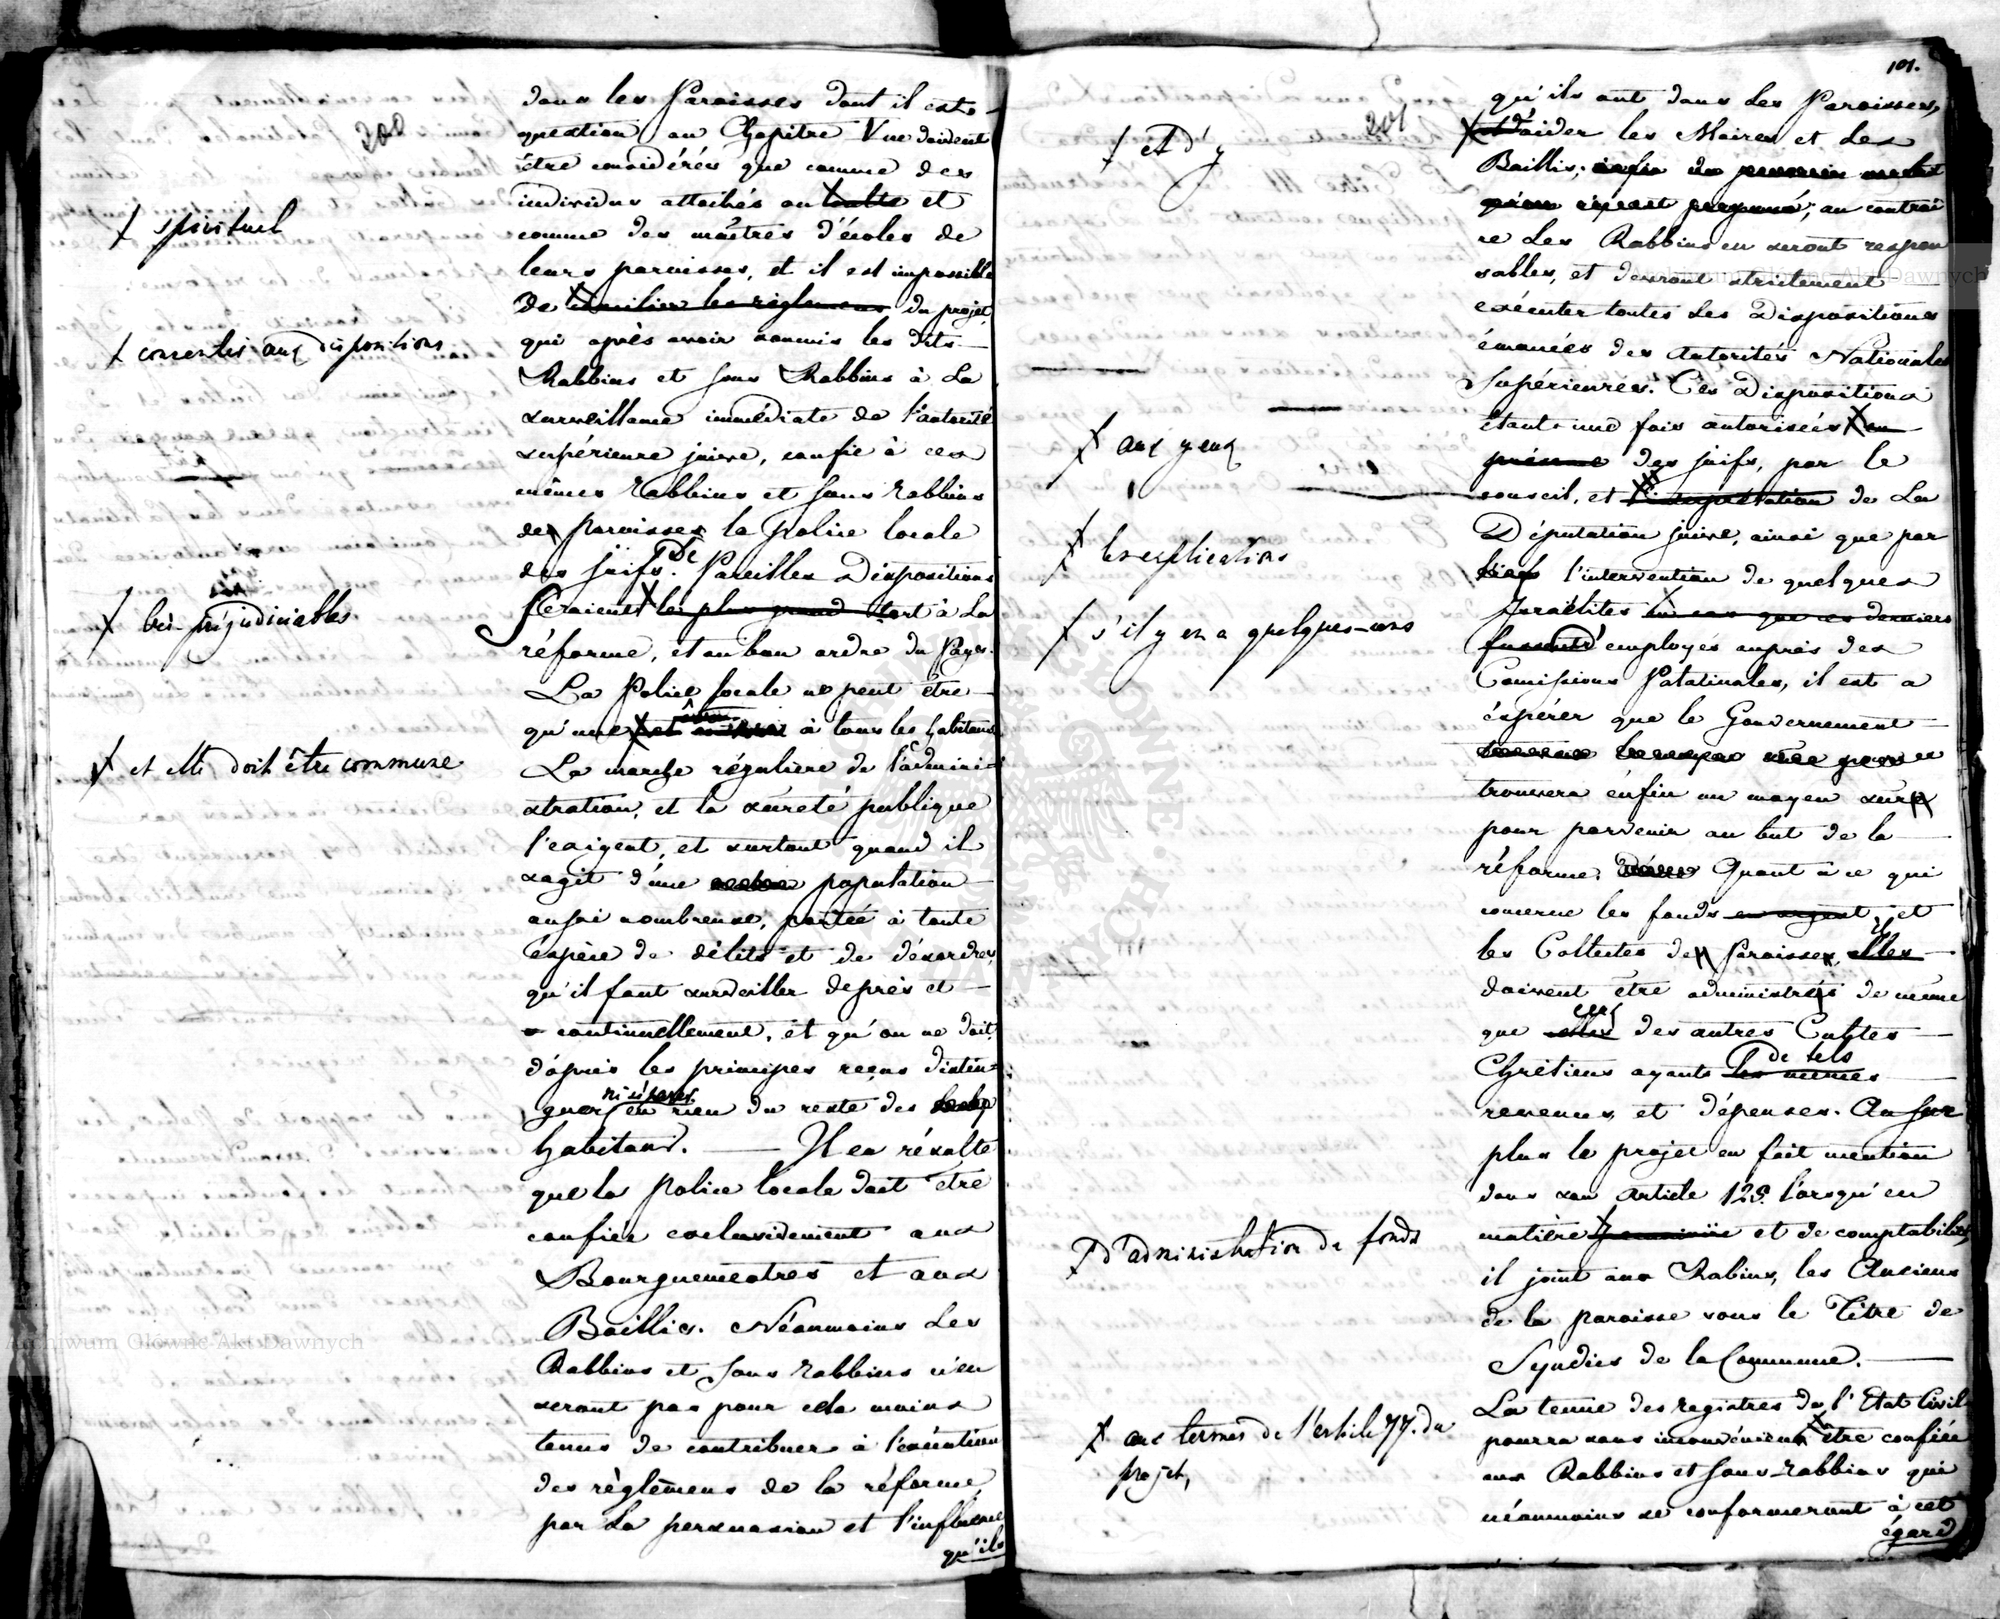 200
dans les Paroisses dont il est
question au Chapitre V ne doivent
être considérés que comme des
individus attachés au culte et
+ spirituel
comme des maîtres d'écoles de
leurs paroisses, et il est impossible
de concilier les réglemens du projet,
+ consentir aux dispositions
qui après avoir soumis les dits
Rabbins et sous Rabbins à La
surveillance immédiate de l'autorité
supérieure juive, confie à ces
mêmes rabbins et sous rabbins
des paroisses la police locale
des juifs. De Pareilles Dispositions
seraient le plus grand tort à La
+ très préjudiciables
réforme, et au bon ordre du Pays.
La Police locale ne peut être
qu'une et à tous les habitans
+ et elle doit être commune
La marche régulière de l'admini-
stration, et la sûreté publique
l'exigent, et surtout quand il
s'agit d'une population
aussi nombreuse, portée à toute
espèce de délits et de désordres,
qu'il faut surveiller de près et
continuellement, et qu'on ne doit,
d'après les principes reçus distin-
guer en rien du reste des
habitans. Il en résulte
que la Police locale doit être
confiée exclusivement aux
Bourguemestres et aux
Baillis. Néanmoins Les
Rabbins et sous rabbins n'en
seront pas pour cela moins
tenus de contribuer à l'exécution
des règlemens de la réforme,
par La persuasion et l'influence
qu'ils
101.
201
qu'ils ont dans Les Paroisses,
+ et d'y
et d'aider les Maires et Les
Baillis; au contrai
re Les Rabbins en seront respon
sables, et devront strictement
exécuter toutes Les Dispositions
émanées des Autorités Nationales
Supérieures. Ces Dispositions
étant une fois autorisées
+ aux yeux
des juifs, par le
conseil, et de La
+ les explications
Députation juive, ainsi que par
l'intervention de quelques
Israélites en cas que ces derniers
+ s'il y en a quelques-uns
employés auprès des
Comissions Palatinales, il est a
éspérer que le Gouvernement
trouvera enfin un moyen sur
pour parvenir au but de la
réforme. Quant à ce qui
concerne les fonds en argent, et
les Collectes des Paroisses, elles
doivent être administrés de même
que ceux des autres Cultes
Chrétiens ayants de tels
les mêmes
revenus, et dépenses. Au sur
plus le projet en fait mention
dans son Article 123. lorsqu'en
matière et de comptabilité,
+ d'administration de fonds
il joint aux Rabins, les Anciens
de la paroisse sous le Titre de
Syndics de la Commune.
La tenue des registres de l'Etat Civil
pourra sans inconvénient être confiée
+ aux termes de l'article 77. du
projet,
aux Rabbins et sous-rabbins qui
néanmoins se conformeront à cet
égard
Archiwum Główne Akt Dawnych
Archiwum Główne Akt Dawnych